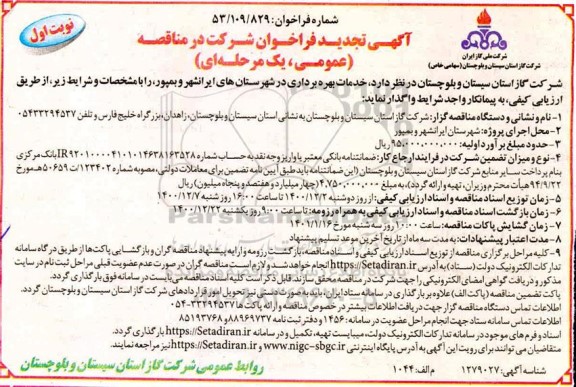 شماره فراخوان: ۵۳/۱۰۹/۸۲۹
نوبت اول
آگهی تجدید فراخوان شرکت در مناقصه
(عمومی، یک مرحله‌ای)
شرکت ملی گاز ایران
شرکت گاز استان سیستان و بلوچستان (سهامی خاص)
شرکت گاز استان سیستان و بلوچستان در نظر دارد، خدمات بهره برداری در شهرستان های ایرانشهر و بمپور، را با مشخصات و شرایط زیر، از طریق
ارزیابی کیفی، به پیمانکار واجد شرایط واگذار نماید:
۱- نام و نشانی و دستگاه مناقصه گزار: شرکت گاز استان سیستان و بلوچستان به نشانی استان سیستان و بلوچستان، زاهدان، بزرگراه خلیج فارس و تلفن ۰۵۴۳۳۲۹۴۵۳۷
۲- محل اجرای پروژه: شهرستان ایرانشهر و بمپور
۳- حدود مبلغ برآورد اولیه: ۹۵،۰۰۰،۰۰۰،۰۰۰ ریال
۴- نوع و میزان تضمین شرکت در فرایند ارجاع کار: ضمانتنامه بانکی معتبر یا واریز وجه نقد به حساب شماره IR۹۲۰۱۰۰۰۰۴۱۰۱۰۱۴۶۳۸۱۶۳۵۲۸ بانک مرکزی
بنام پرداخت سایر منابع شرکت گاز استان سیستان و بلوچستان (این ضمانتنامه باید طبق آیین نامه تضمین برای معاملات دولتی، مصوبه شماره ۱۲۳۴۰۲/ت۵۰۶۵۹هـ مورخ
۹۴/۹/۲۲ هیأت محترم وزیران، تهیه و ارائه گردد)، به مبلغ ۴،۷۵۰،۰۰۰،۰۰۰ (چهار میلیارد و هفتصد و پنجاه میلیون) ریال
۵- زمان توزیع اسناد مناقصه و اسناد ارزیابی کیفی: از روز دوشنبه ۱۴۰۰/۱۲/۲ تا ساعت ۱۶:۰۰ روز شنبه ۱۴۰۰/۱۲/۷
۶- زمان بازگشت اسناد مناقصه و اسناد ارزیابی کیفی به همراه رزومه: تا ساعت ۹:۰۰ روز یکشنبه ۱۴۰۰/۱۲/۲۲
۷- زمان گشایش پاکات مناقصه: ساعت روز شنبه مورخ ۱۴۰۱/۱/۱۶
۸- مدت اعتبار پیشنهادات: به مدت سه ماه از تاریخ آخرین موعد تسلیم پیشنهاد
۹- کلیه مراحل برگزاری مناقصه از توزیع اسناد ارزیابی کیفی و اسناد مناقصه، بازگشت رزومه و ارایه پیشنهاد مناقصه گران و بازگشایی پاکت‌ها از طریق درگاه سامانه
تدارکات الکترونیک دولت (ستاد) به آدرس https://Setadiran.ir انجام خواهد شد و لازم است مناقصه گران در صورت عدم عضویت قبلی مراحل ثبت نام در سایت
مذکور و دریافت گواهی امضای الکترونیکی را جهت شرکت در مناقصه محقق سازند. قابل ذکر است کلیه اسناد مناقصه می‌بایست در سامانه فوق بارگذاری گردد.
پاکت تضمین مناقصه (پاکت الف) علاوه بر بارگذاری در سامانه ستاد باید در مدت تعیین شده بصورت فیزیکی تحویل امور قراردادهای شرکت گاز استان سیستان و بلوچستان گردد.
اطلاعات تماس دستگاه مناقصه گزار جهت دریافت اطلاعات بیشتر در خصوص مناقصه و ارائه پاکت ها ۳۳۲۹۴۵۳۷-۰۵۴
اطلاعات تماس سامانه ستاد جهت انجام مراحل عضویت در سامانه: ۱۴۵۶ و دفتر ثبت نامه ۸۸۹۶۹۷۳۷ و ۸۵۱۹۳۷۶۸
اسناد و فرم های موجود در سامانه تدارکات الکترونیک دولت، میبایست تهیه، تکمیل و در سامانه https://Setadiran.ir بارگذاری گردد.
متقاضیان می توانند برای رویت این آگهی به آدرس پایگاه اینترنتی www.nigc-sbgc.ir و https://Setadiran.ir نیز مراجعه نمایند.
شناسه آگهی: ۱۲۷۹۰۲۷
م الف: ۱۰۴۴
روابط عمومی شرکت گاز استان سیستان و بلوچستان